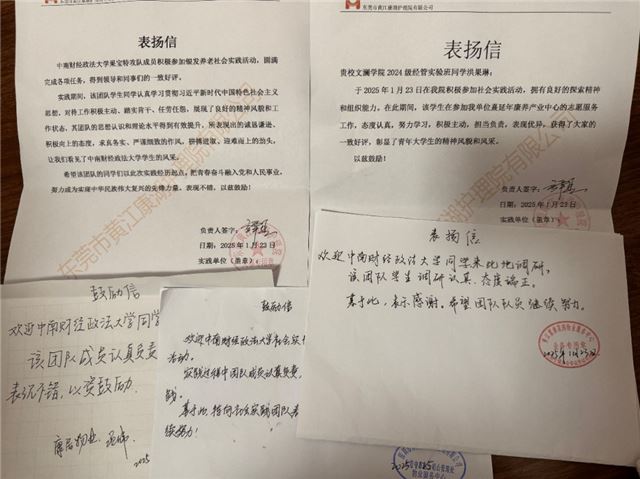 东莞市黄江康湖护理院有限公司
表扬信
中南财经政法大学果宝特攻队成员积极参加银发养老社会实践活动，圆满
完成各项任务，得到领导和同事们的一致好评。
实践期间，该团队学生同学认真学习贯彻习近平新时代中国特色社会主义
思想，对待工作积极主动、踏实肯干、任劳任怨，展现了良好的精神风貌和工
作状态，其团队的思想认识和理论水平得到有效提升，所表现出的诚恳谦逊、
积极向上的态度，求真务实、严谨细致的作风，拼搏进取、迎难而上的劲头，
让我们看见了中南财经政法大学学生的风采。
希望该团队的同学以此次实践经历起点，把青春奋斗融入党和人民事业，
努力成为实现中华民族伟大复兴的先锋力量。表现不错，以兹鼓励！
负责人签字：
日期：2025 年 1 月 23 日
实践单位（盖章）：
东莞市黄江康湖护理院有限公司
表扬信
贵校文澜学院 2024 级经管实验班同学洪果琳：
于 2025 年 1 月 23 日在我院积极参加社会实践活动，拥有良好的探索精神
和组织能力，在此期间，该学生在参加我单位蔓延年康养产业中心的志愿服务
工作，态度认真，努力学习，积极主动，担当负责，表现优异，获得了大家的
一致好评，彰显了青年大学生的精神风貌和风采。
以兹鼓励！
负责人签字：
日期：2025 年 1 月 23 日
实践单位（盖章）：
表扬信
欢迎中南财经政法大学同学来此地调研，
该团队学生调研认真，态度端正。
基于此，表示感谢。希望团队队员继续努力。
鼓励信
欢迎中南财经政法大学同学
该团队成员认真负责
表现不错，以资鼓励。
康居物业
2025
鼓励信
欢迎中南财经政法大学社会实
活动。
实践过程中团队成员认真负责，
基于此，
续努力！